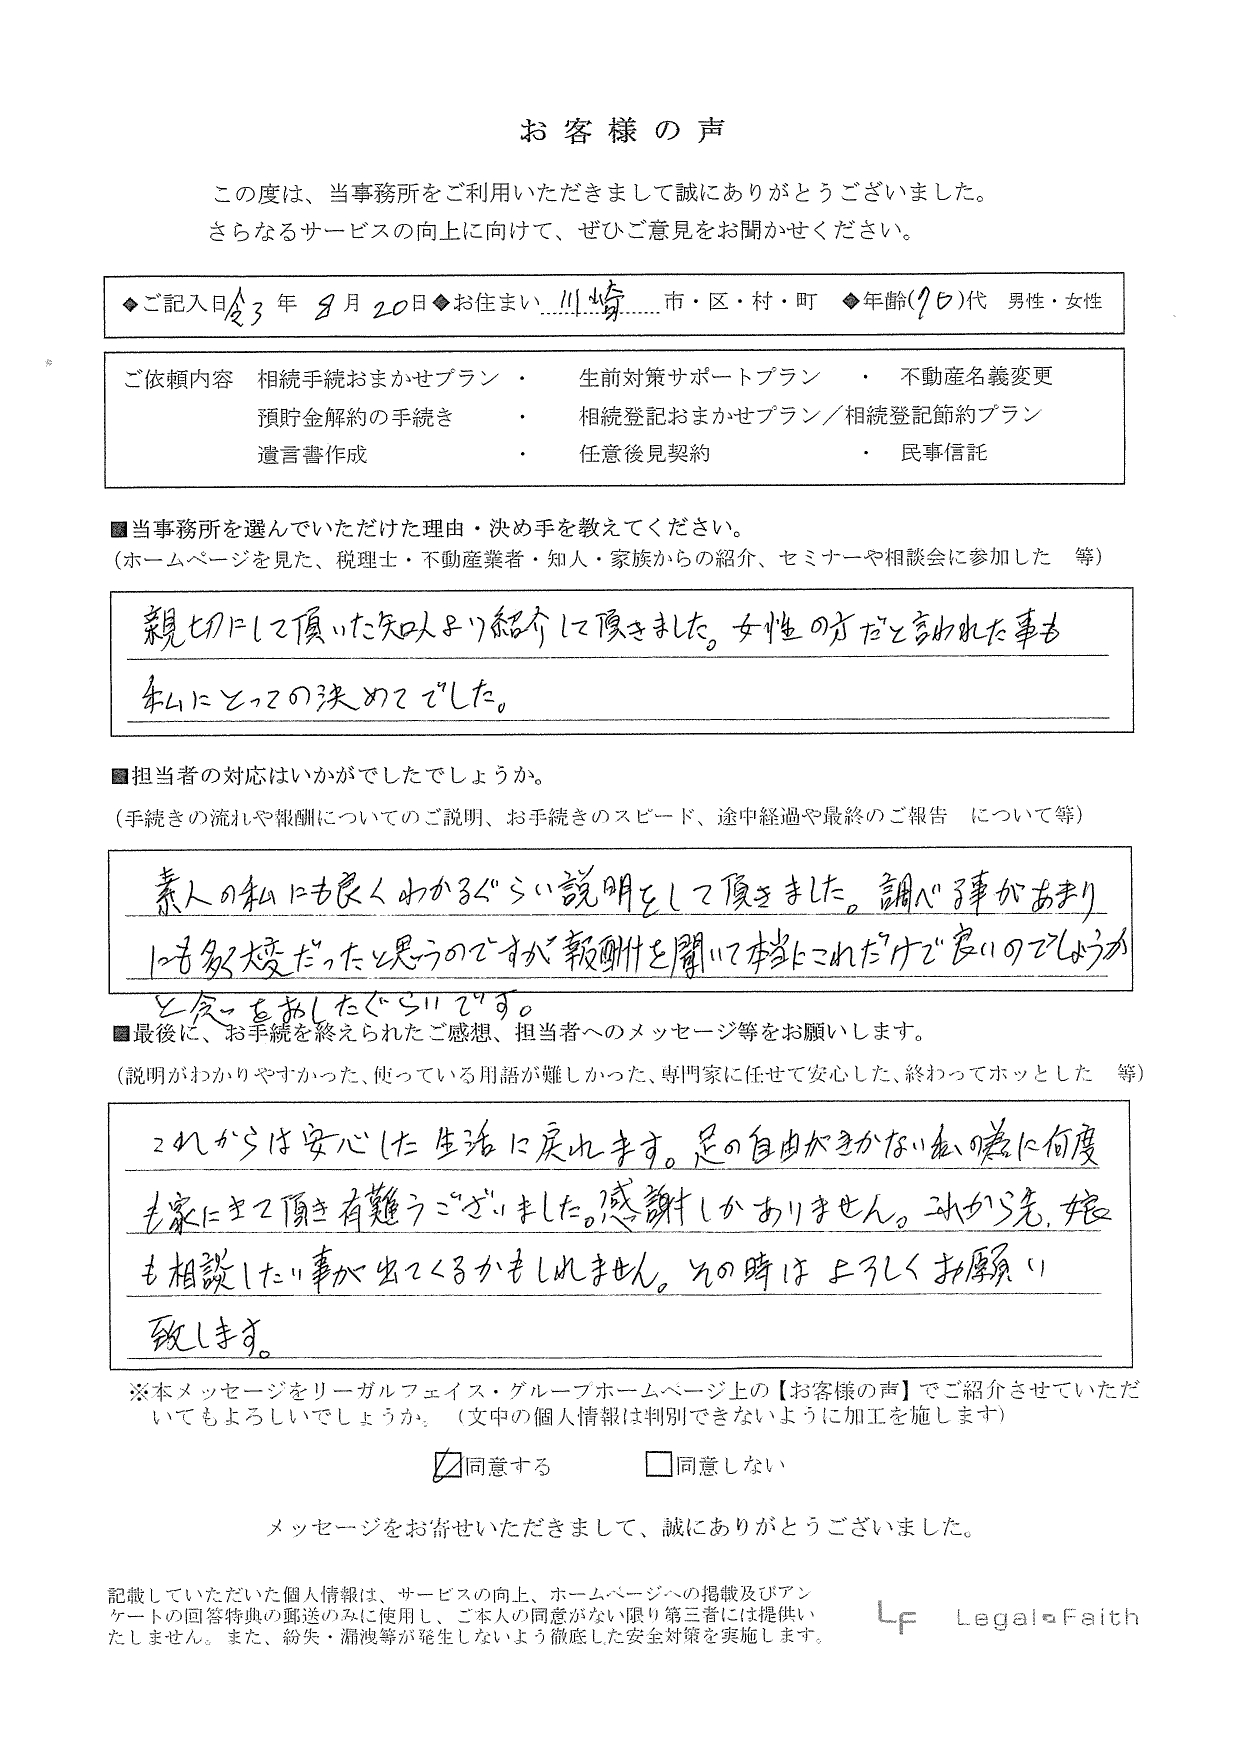 お客様の声
この度は、当事務所をご利用いただきまして誠にありがとうございました。
さらなるサービスの向上に向けて、ぜひご意見をお聞かせください。
◆ご記入日 令3 年 8月 20日◆お住まい 川崎 市・区・村・町 ◆年齢(70)代 男性・女性
ご依頼内容 相続手続おまかせプラン ・ 生前対策サポートプラン ・ 不動産名義変更
預貯金解約の手続き ・ 相続登記おまかせプラン／相続登記節約プラン
遺言書作成 ・ 任意後見契約 ・ 民事信託
■当事務所を選んでいただけた理由・決め手を教えてください。
（ホームページを見た、税理士・不動産業者・知人・家族からの紹介、セミナーや相談会に参加した 等）
親切にして頂いた知人より紹介して頂きました。女性の方だと言われた事も
私にとっての決めてでした。
■担当者の対応はいかがでしたでしょうか。
（手続きの流れや報酬についてのご説明、お手続きのスピード、途中経過や最終のご報告 について等）
素人の私にも良くわかるぐらい説明をして頂きました。調べる事があまり
にも多く大変だったと思うのですが報酬を聞いて本当にこれだけで良いのでしょうか
と念をおしたぐらいです。
■最後に、お手続を終えられたご感想、担当者へのメッセージ等をお願いします。
（説明がわかりやすかった、使っている用語が難しかった、専門家に任せて安心した、終わってホッとした 等）
これからは安心した生活に戻れます。足の自由がきかない私の為に何度
も家にまで頂き有難うございました。感謝しかありません。これから先、娘
も相談したい事が出てくるかもしれません。その時はよろしくお願い
致します。
※本メッセージをリーガルフェイス・グループホームページ上の【お客様の声】でご紹介させていただ
いてもよろしいでしょうか。（文中の個人情報は判別できないように加工を施します）
☑同意する □同意しない
メッセージをお寄せいただきまして、誠にありがとうございました。
記載していただいた個人情報は、サービスの向上、ホームページへの掲載及びアン
ケートの回答特典の郵送のみに使用し、ご本人の同意がない限り第三者には提供い
たしません。また、紛失・漏洩等が発生しないよう徹底した安全対策を実施します。
LF Legal Faith